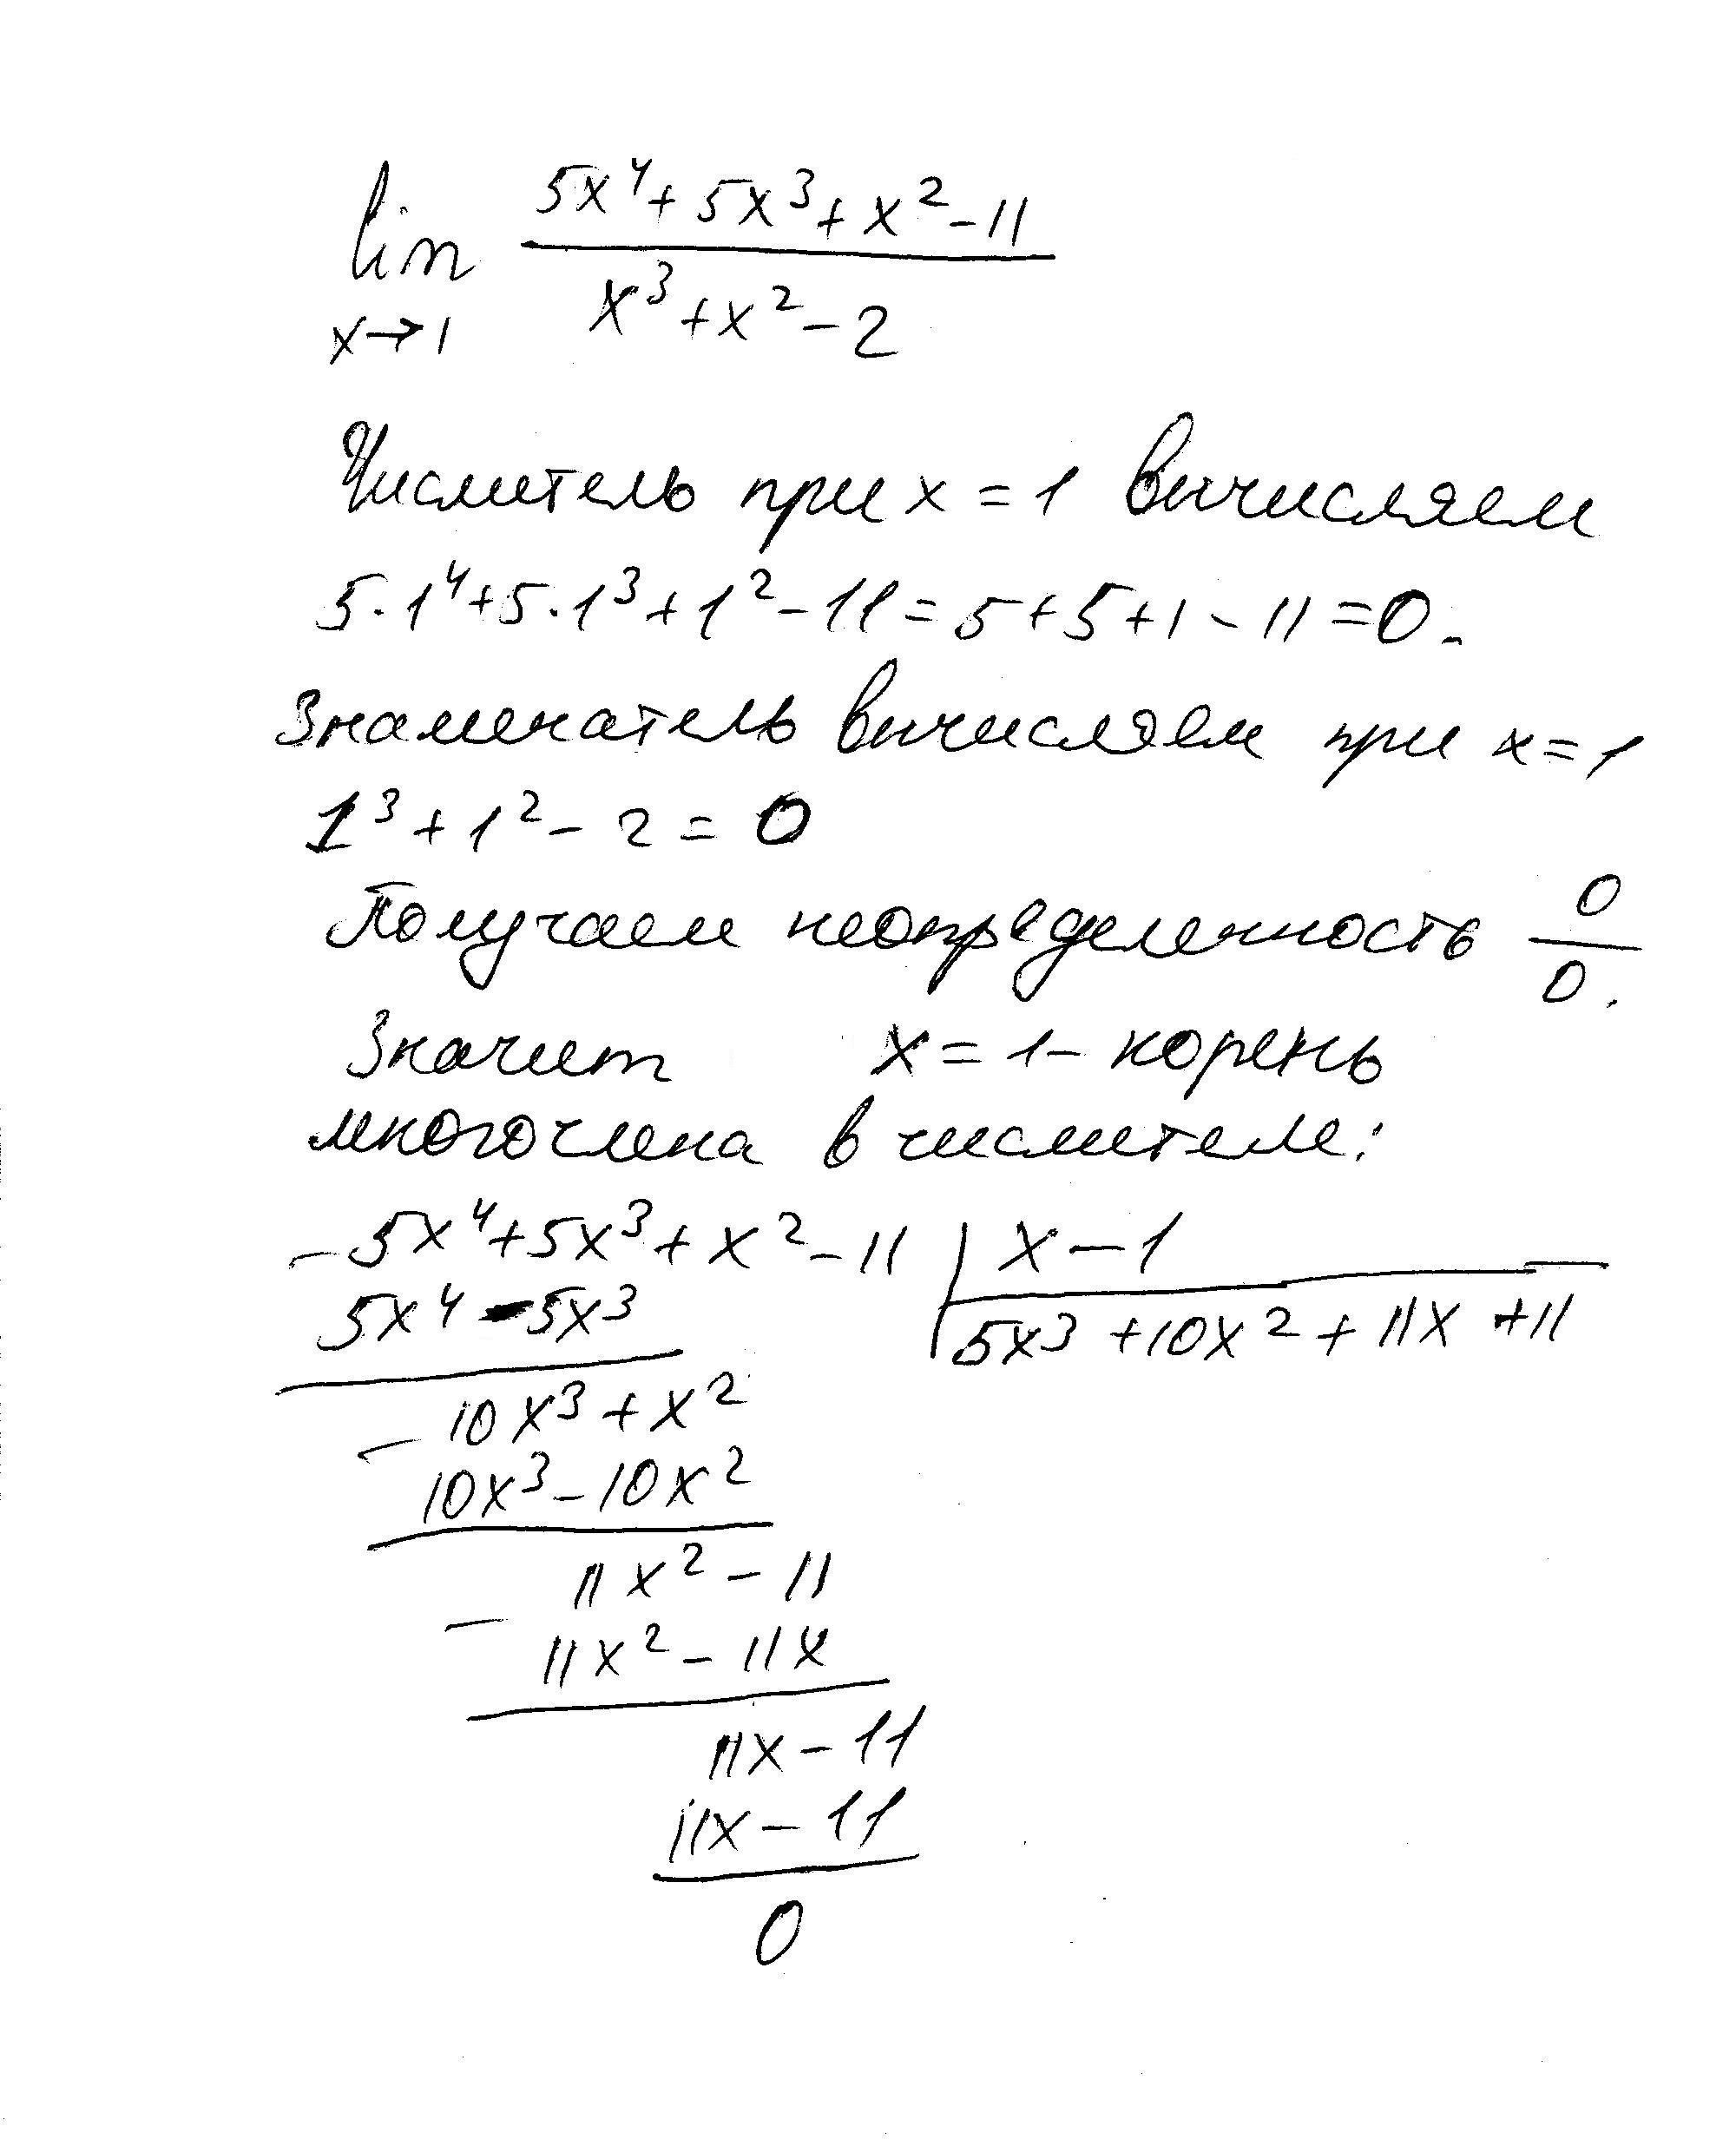 lim 5x⁴ + 5x³ + x² - 11
x³ + x² - 2
x → 1
Числитель при x = 1 вычисляем
5·1⁴ + 5·1³ + 1² - 11 = 5 + 5 + 1 - 11 = 0.
Знаменатель вычисляем при x = 1
1³ + 1² - 2 = 0
Получаем неопределенность 0/0.
Значит x = 1 - корень
многочлена в числителе:
- 5x⁴ + 5x³ + x² - 11 | x - 1
5x⁴ - 5x³ | 5x³ + 10x² + 11x + 11
- 10x³ + x²
10x³ - 10x²
- 11x² - 11
11x² - 11x
11x - 11
11x - 11
0